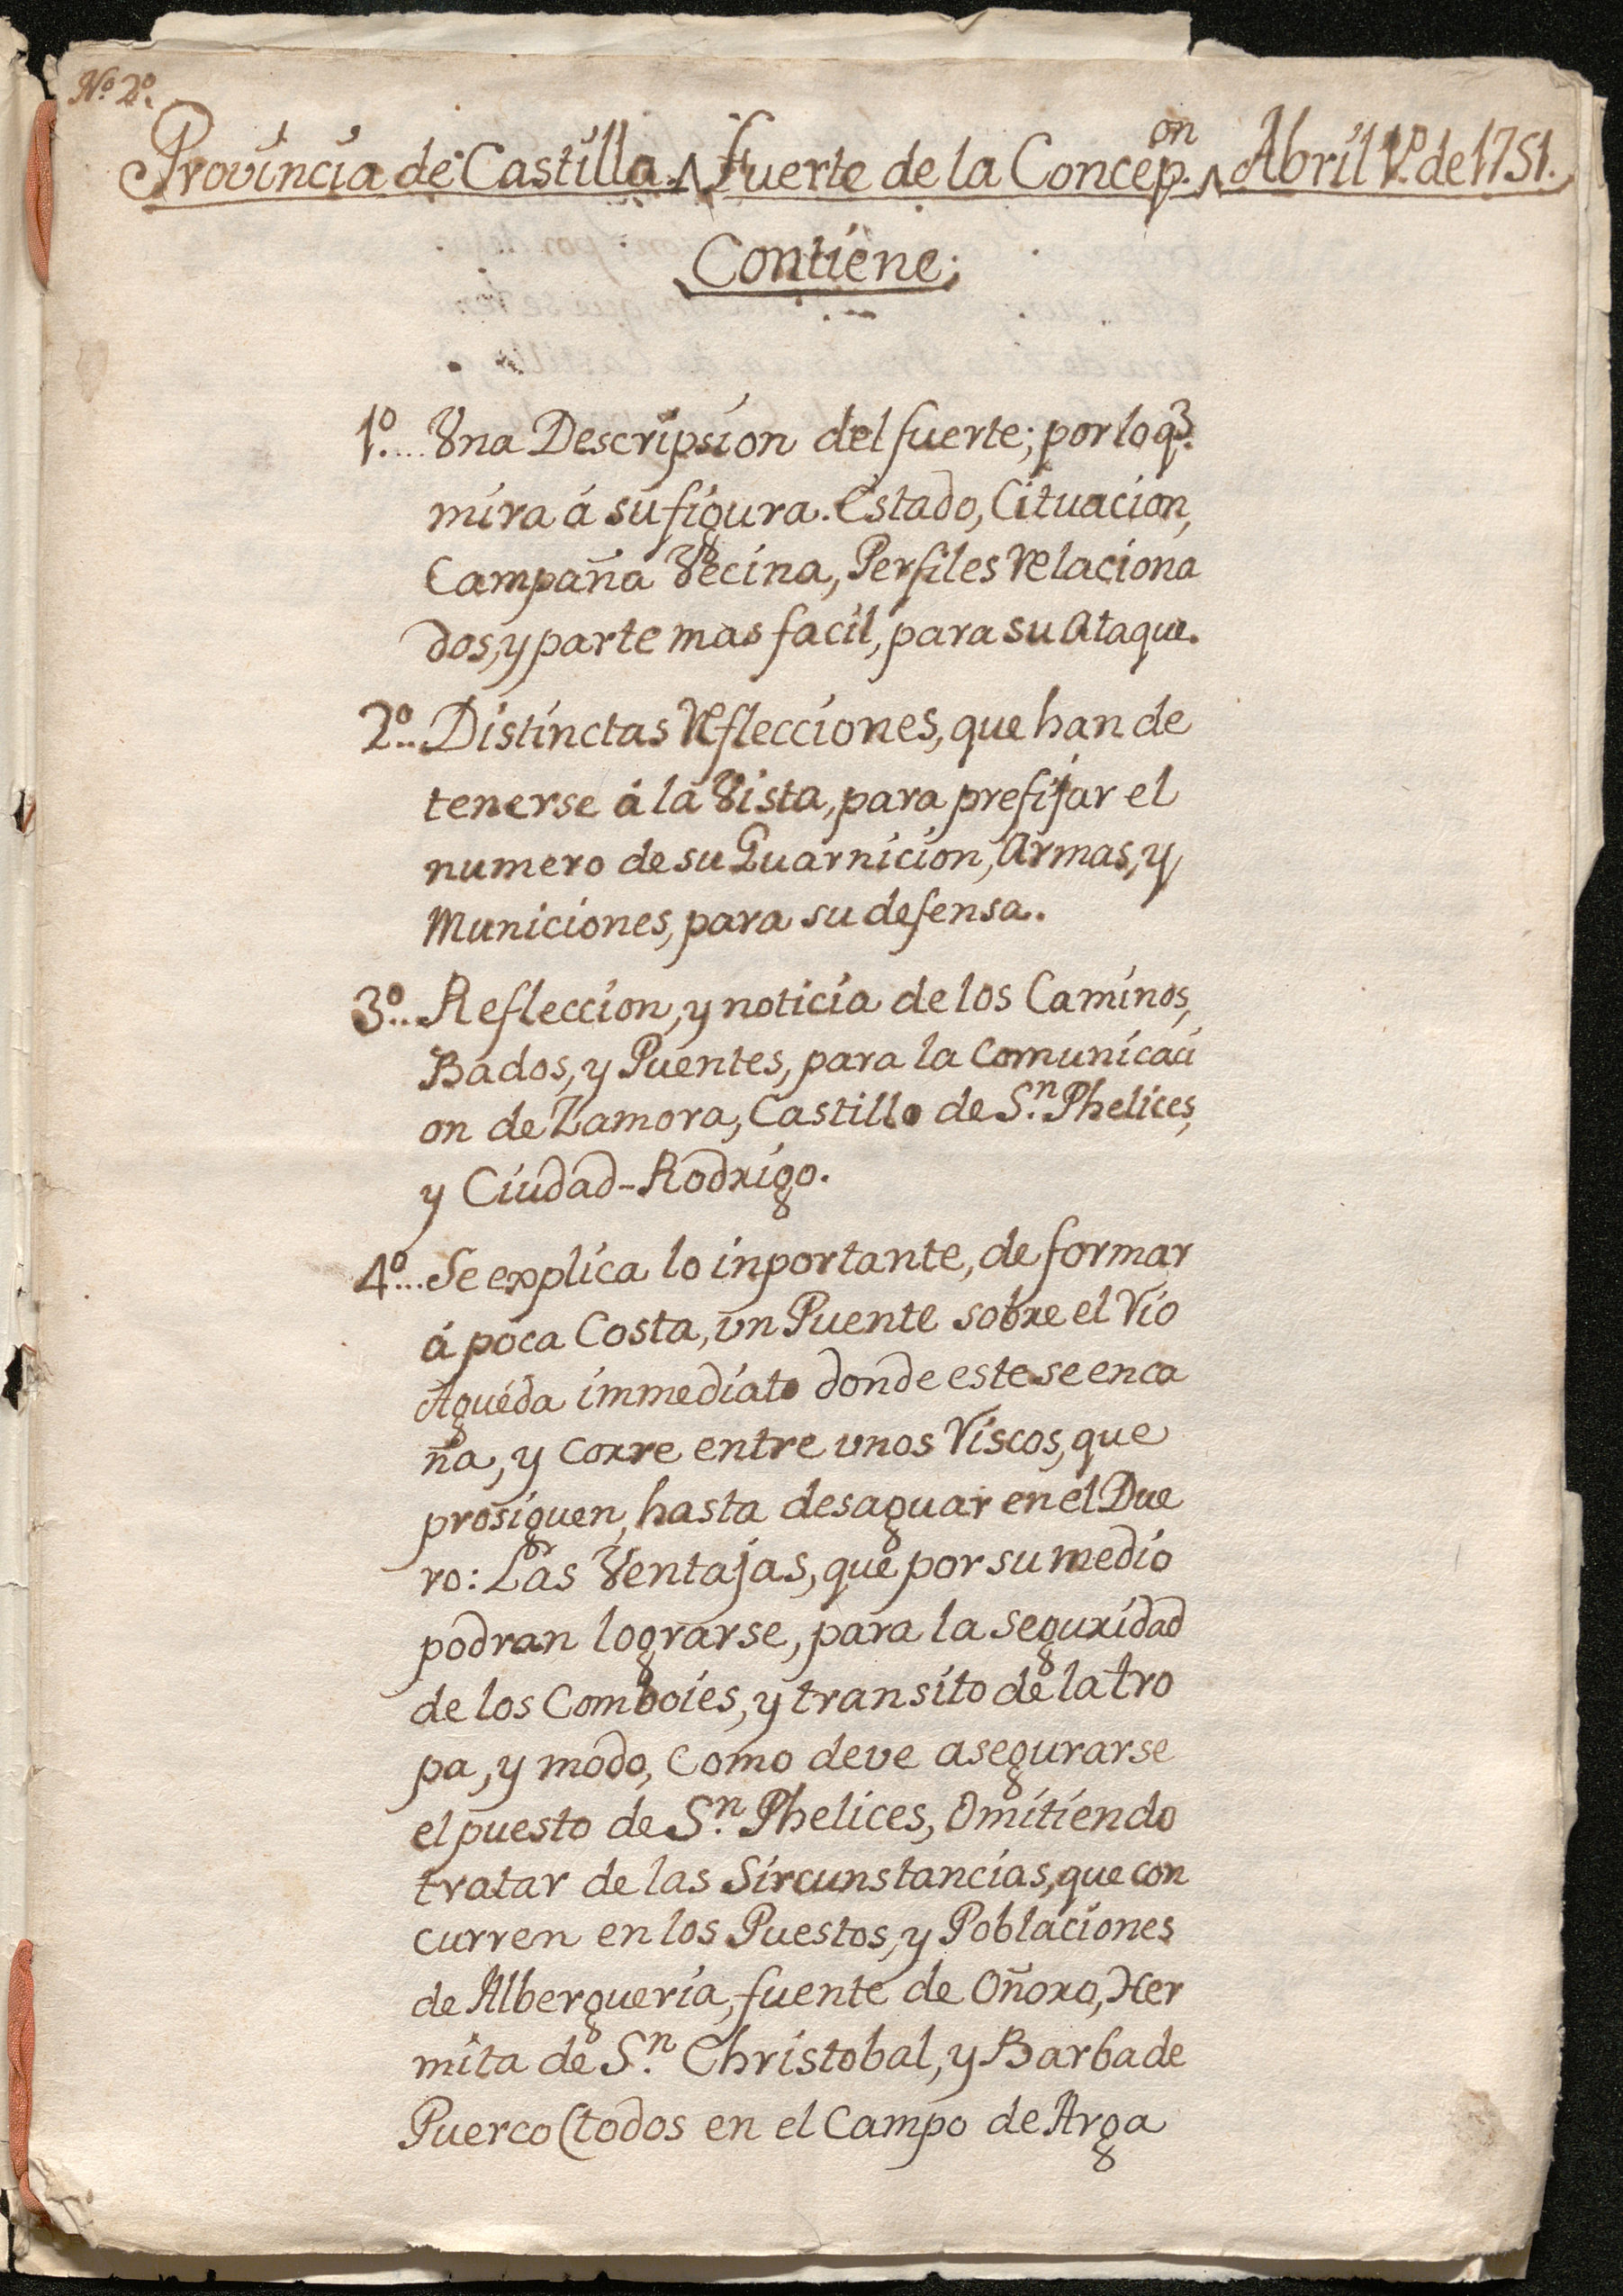 Nº 2º.
Provincia de Castilla. Fuerte de la Concep.on Abril 1º de 1751.
Contiene;
1º.... Vna Descripsion del fuerte; por lo q.e
mira á su figura. Estado, Cituacion,
Campaña Vecina, Perfiles Relaciona
dos, y parte mas facil, para su Ataque.
2º... Distinctas Reflecciones, que han de
tenerse á la Vista, para prefijar el
numero de su Guarnicion, Armas, y
Municiones, para su defensa.
3º... Refleccion, y noticia de los Caminos,
Bados, y Puentes, para la Comunicaci
on de Zamora, Castillo de S.n Phelices,
y Ciudad-Rodrigo.
4º.... Se explica lo inportante, de formar
á poca Costa, vn Puente sobre el Rio
Agueda immediato donde este se enca
ña, y corre entre vnos Riscos, que
prosiguen, hasta desaguar en el Due
ro: Las Ventajas, que por su medio
podran lograrse, para la seguridad
de los Comboies, y transito de la tro
pa, y modo, Como deve asegurarse
el puesto de S.n Phelices, Omitiendo
tratar de las Sircunstancias, que con
curren en los Puestos, y Poblaciones
de Alberqueria, fuente de Oñoro, Her
mita de S.n Christobal, y Barba de
Puerco (todos en el Campo de Arga